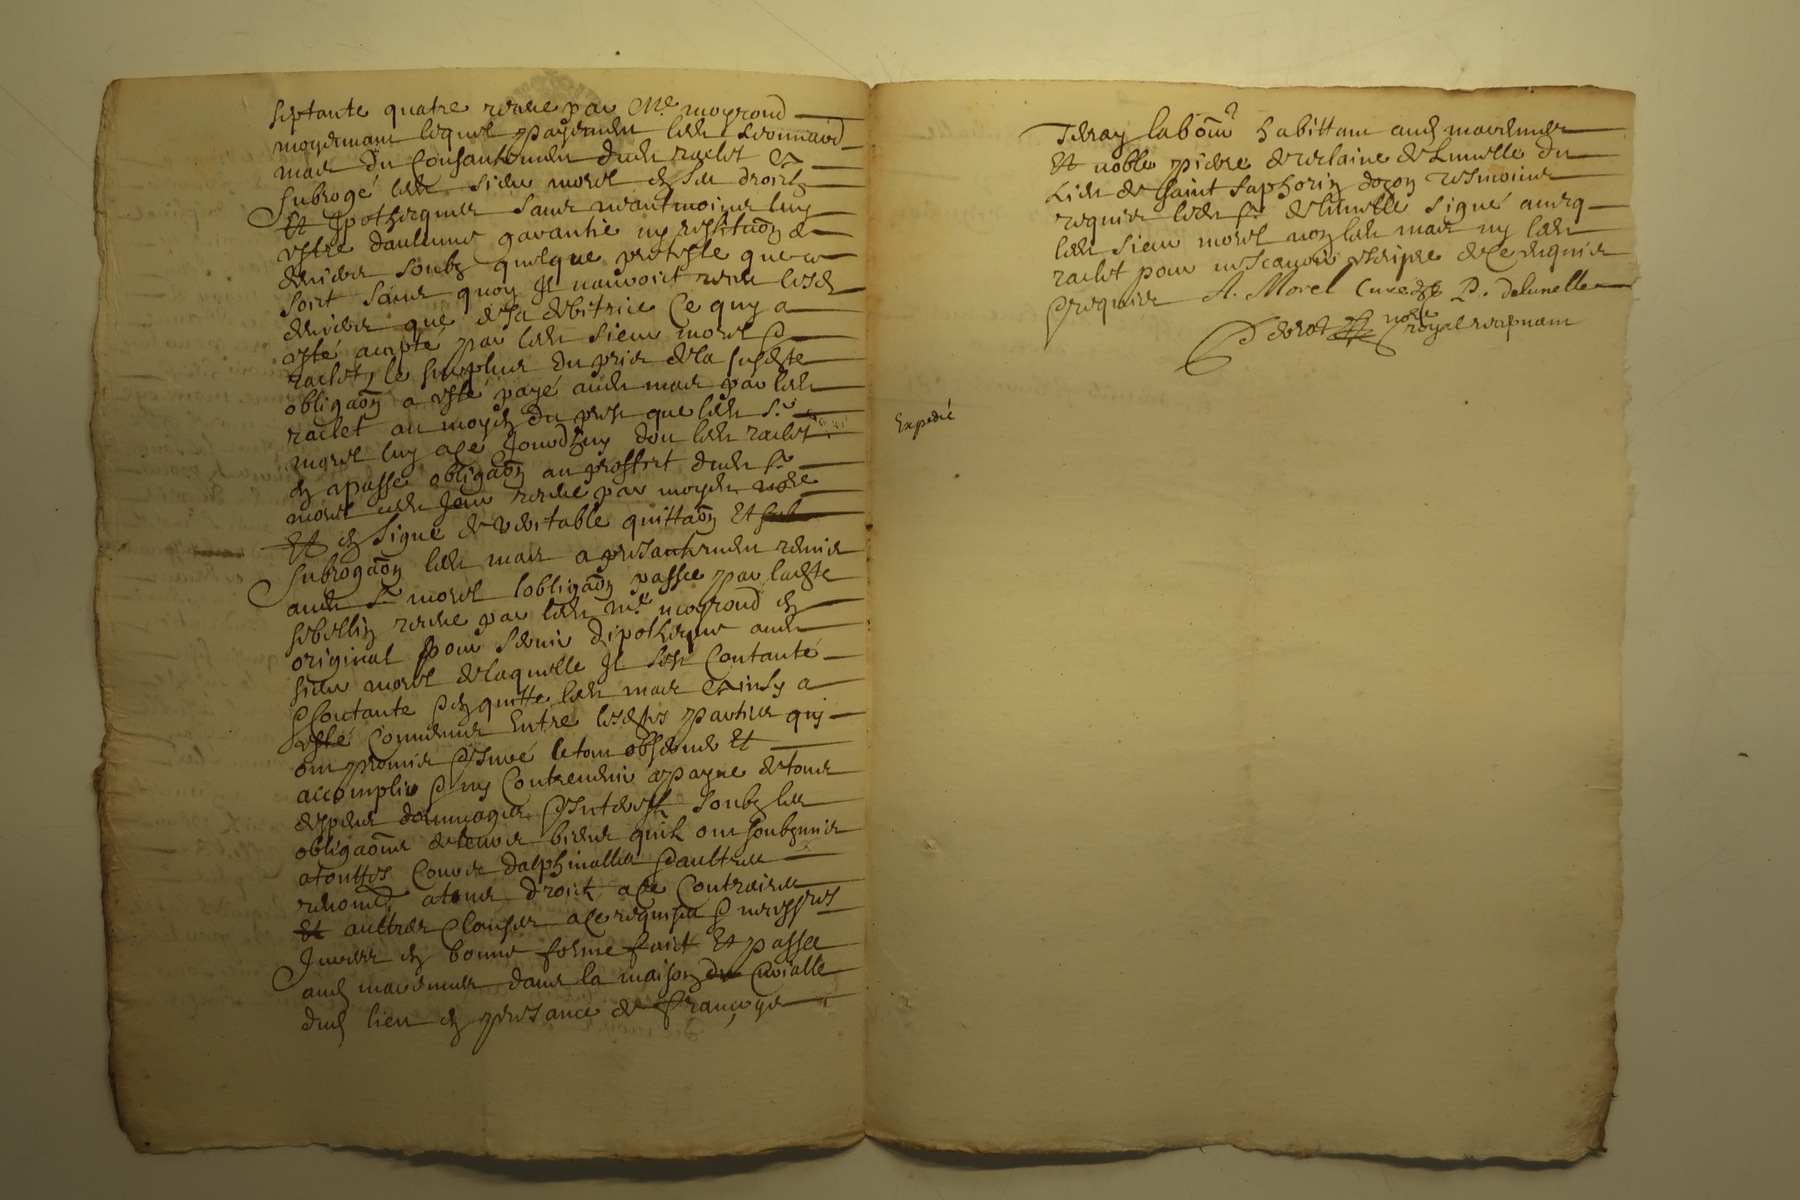 septante quatre receue par Me moyroud
moyennant lequel payement ledit Leonnard
mard du Consantement dudit raclet A
subrogé ledit sieur morel en ses droictz
Et Ipothecques sans neantmoings luy
estre daulcune garantie ny restitua͠on de
deniers soubz quelque preteste que ce
soit sans quoy Il nauroict receu lesd
deniers que de sa debitrice Ce quy a
esté accepté par ledit sieur morel &
raclet, le surplus du prix de la susdte
obliga͠on a esté payé audit mard par ledit
raclet au moyen du prest que ledit Sr
morel luy a fé Jourdhuy dou ledit raclet
en a passé obliga͠on au proffict dudit Sr
morel cedit Jour receue par moydit nore
Et en signe de veritable quitta͠on Et
subroga͠on ledit mard a presantement remis
audit Sr morel lobliga͠on passée par ladte
sebellin receue par ledit Me moyroud en
original pour servir dipotheque audit
sieur morel de laquelle Il sest Contanté
& Contante & en quitte ledit mard Et ainsy a
esté Convenu Entre lesdes parties quy
ont promis & Juré le tout observer Et
accomplir & ny Contrevenir a payne de tous
despens dommages & Interestz soubz les
obliga͠ons de leurs biens quilz ont soubzmis
a touttes Cours dalphinalles & aultres
renoncé a tous droictz a ce Contraires
Et aultres Clauses a ce requises & necessres
Jurées en bonne forme faict Et passé
aud marennes dans la maison Curialle
dud lieu en presance de françoys
Teray labo͠ur habittant aud marennes
Et noble pierre de de Lunelle du
Lieu de Saint Saphorin dozon tesmoins
requis ledit Sr de lunelle signé avecq
ledit sieur morel non ledit mard ny ledit
raclet pour ne scavoir escripre de ce enquis
& requis A. Morel Curé P. delunelle
Expedié
nore royal recepvant